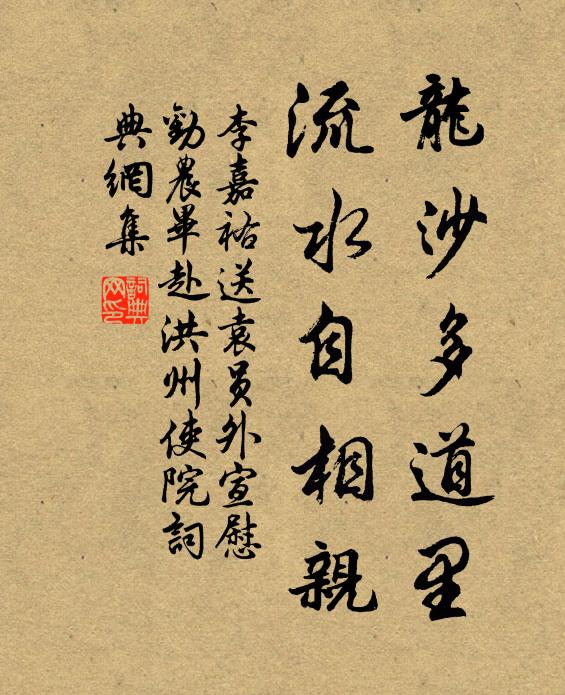 龍沙多道里
流水自相親
李嘉祐送袁員外宣慰
勸農畢赴洪州使院詞
典網集
詞典網印